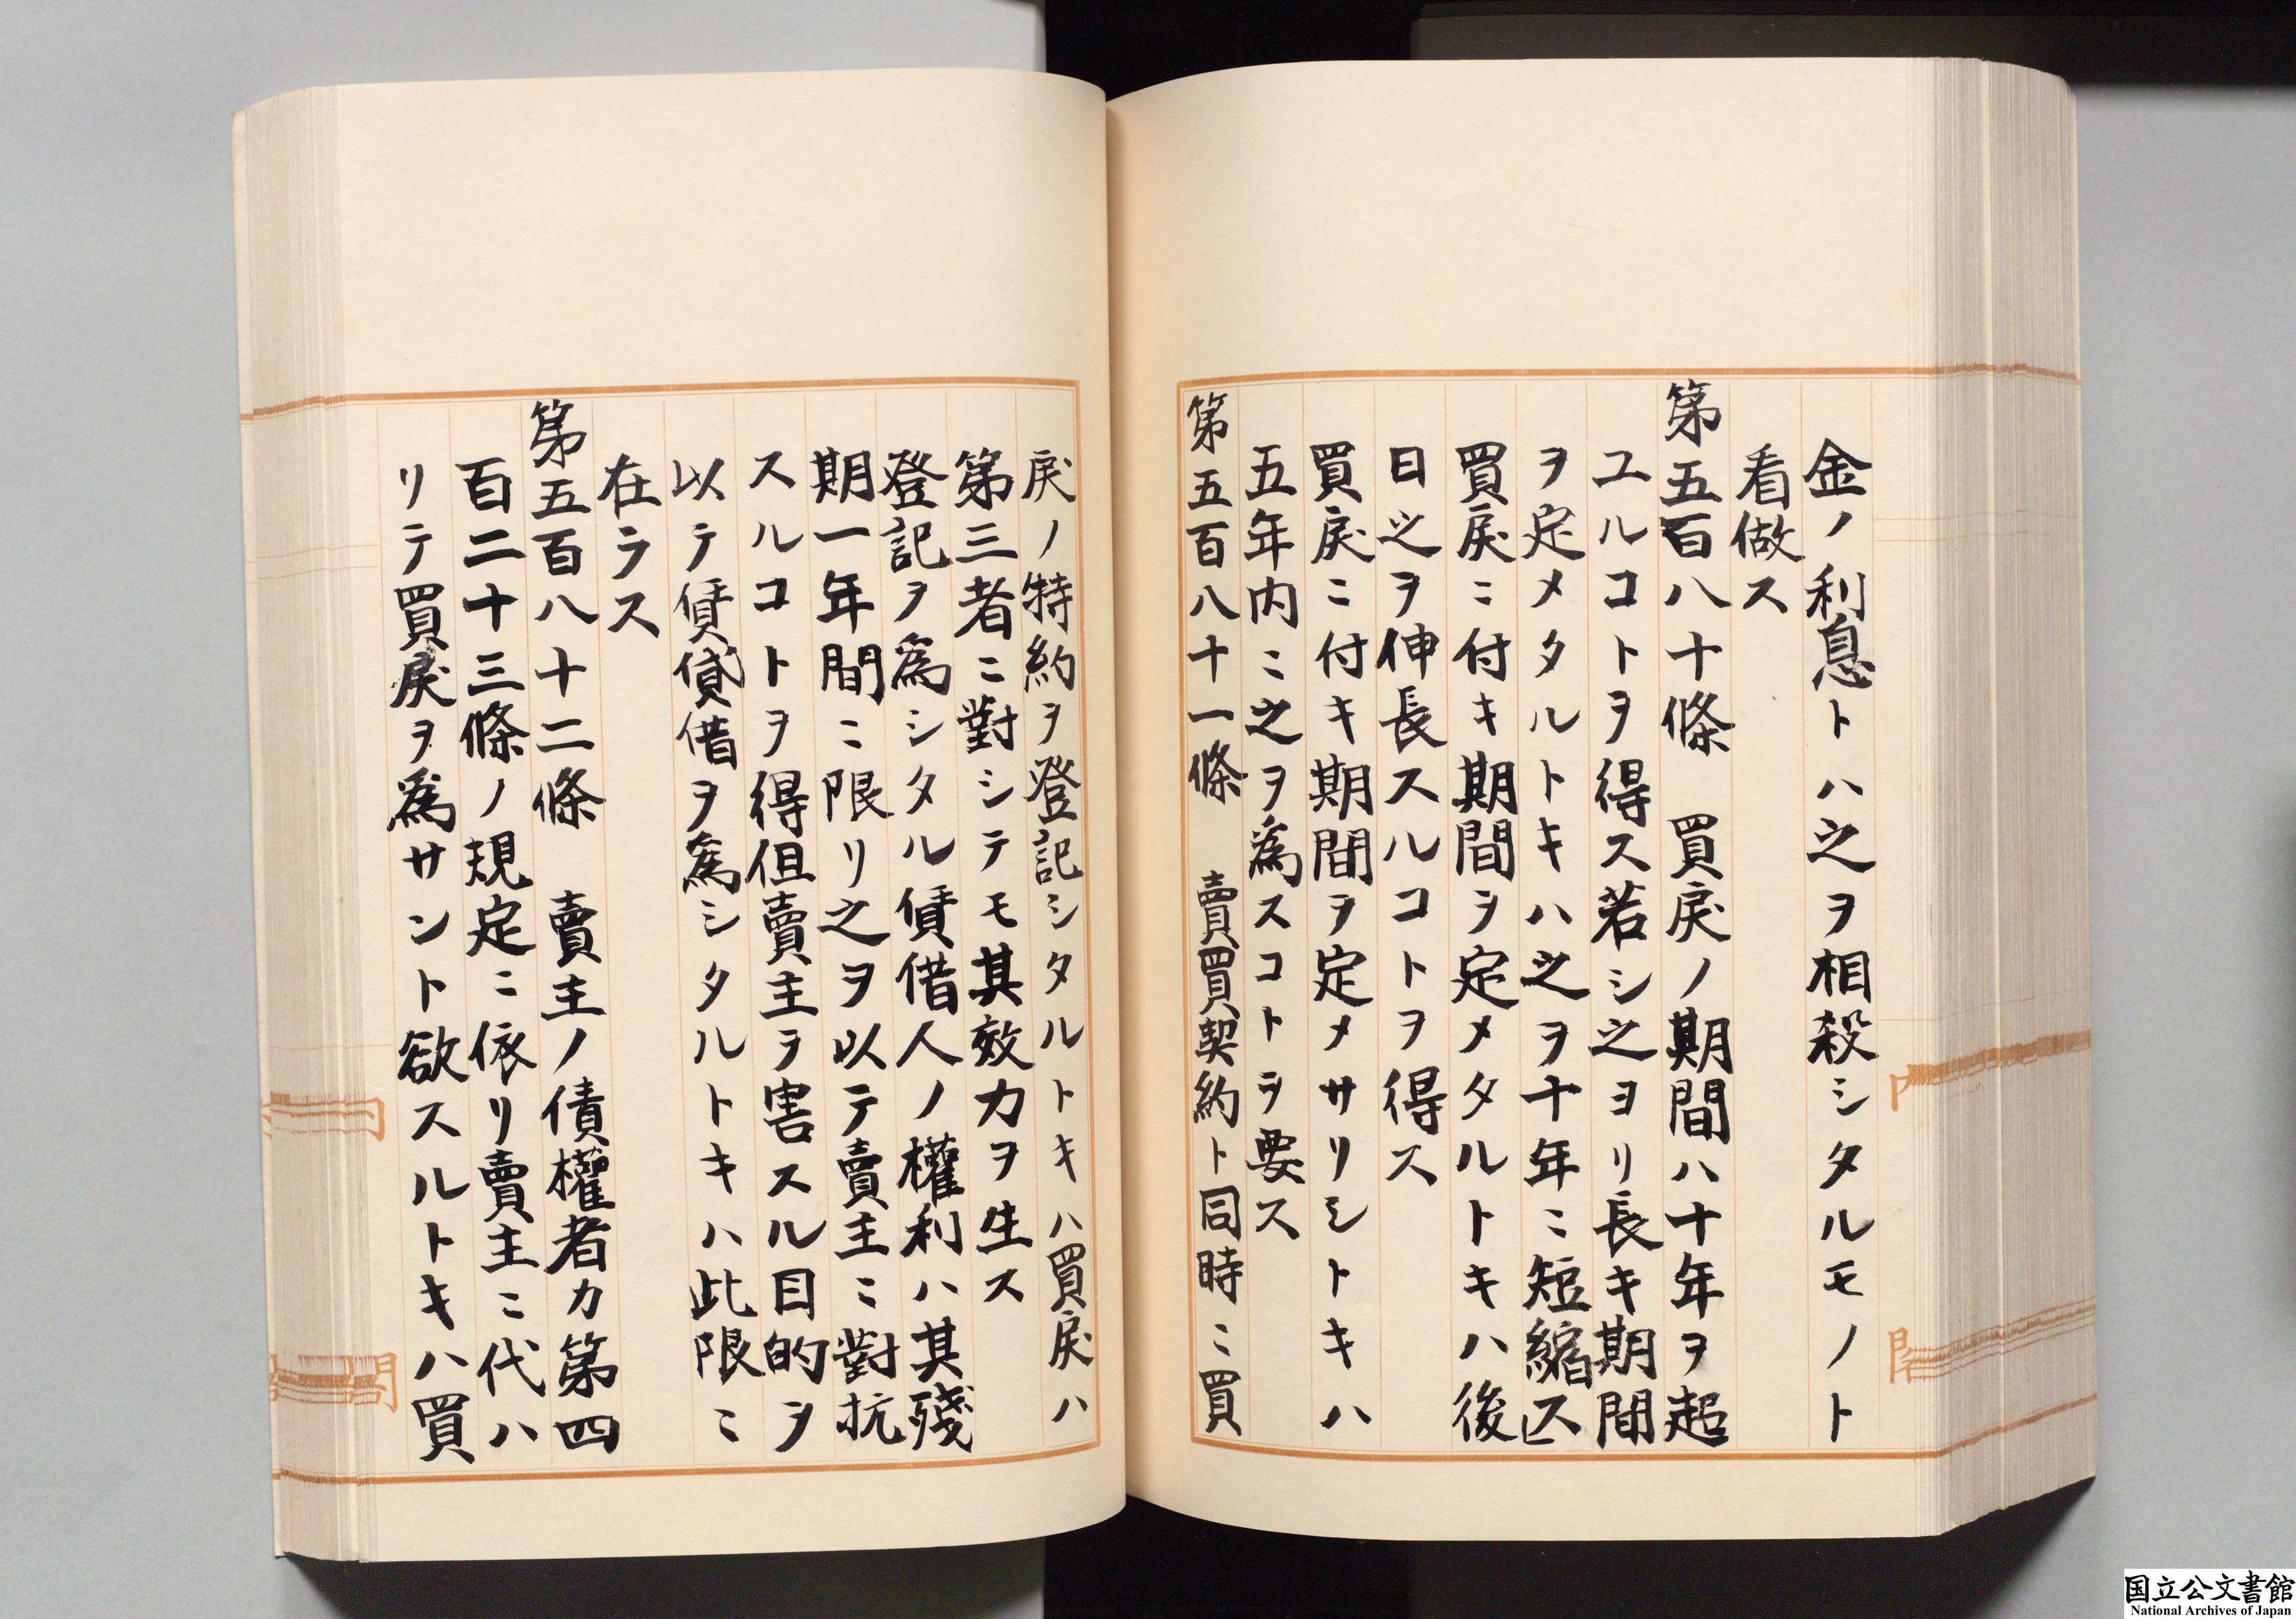 金ノ利息トハ之ヲ相殺シタルモノト
看做ス
第五百八十條　買戻ノ期間ハ十年ヲ超
ユルコトヲ得ス若シ之ヨリ長キ期間
ヲ定メタルトキハ之ヲ十年ニ短縮ス
買戻ニ付キ期間ヲ定メタルトキハ後
日之ヲ伸長スルコトヲ得ス
買戻ニ付キ期間ヲ定メサリシトキハ
五年内ニ之ヲ為スコトヲ要ス
第五百八十一條　賣買契約ト同時ニ買
戻ノ特約ヲ登記シタルトキハ買戻ハ
第三者ニ對シテモ其效力ヲ生ス
登記ヲ為シタル賃借人ノ權利ハ其殘
期一年間ニ限リ之ヲ以テ賣主ニ對抗
スルコトヲ得但賣主ヲ害スル目的ヲ
以テ賃貸借ヲ為シタルトキハ此限ニ
在ラス
第五百八十二條　賣主ノ債權者カ第四
百二十三條ノ規定ニ依リ賣主ニ代ハ
リテ買戻ヲ為サント欲スルトキハ買
内
閣
国立公文書館
National Archives of Japan